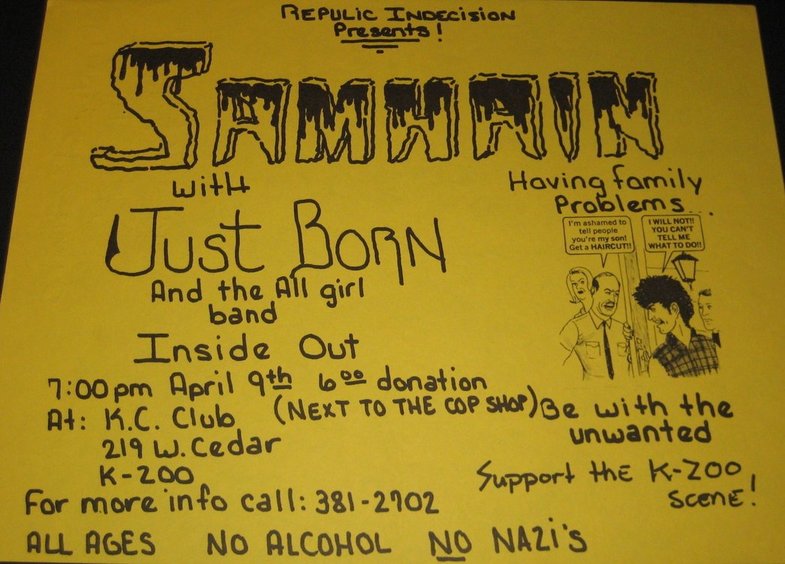 REPULIC INDECISION
Presents!
SAMHAIN
with
JUST BORN
And the All girl
band
Inside Out
7:00pm April 9th 6 00 donation
At: K.C. Club (NEXT TO THE COP SHOP)
219 W. Cedar
K-ZOO
For more info call: 381-2702
ALL AGES NO ALCOHOL NO NAZI's
Having family
Problems...
I'm ashamed to
tell people
you're my son!
Get a HAIRCUT!!
I WILL NOT!!
YOU CAN'T
TELL ME
WHAT TO DO!!
Be with the
unwanted
Support the K-ZOO
SCENE!